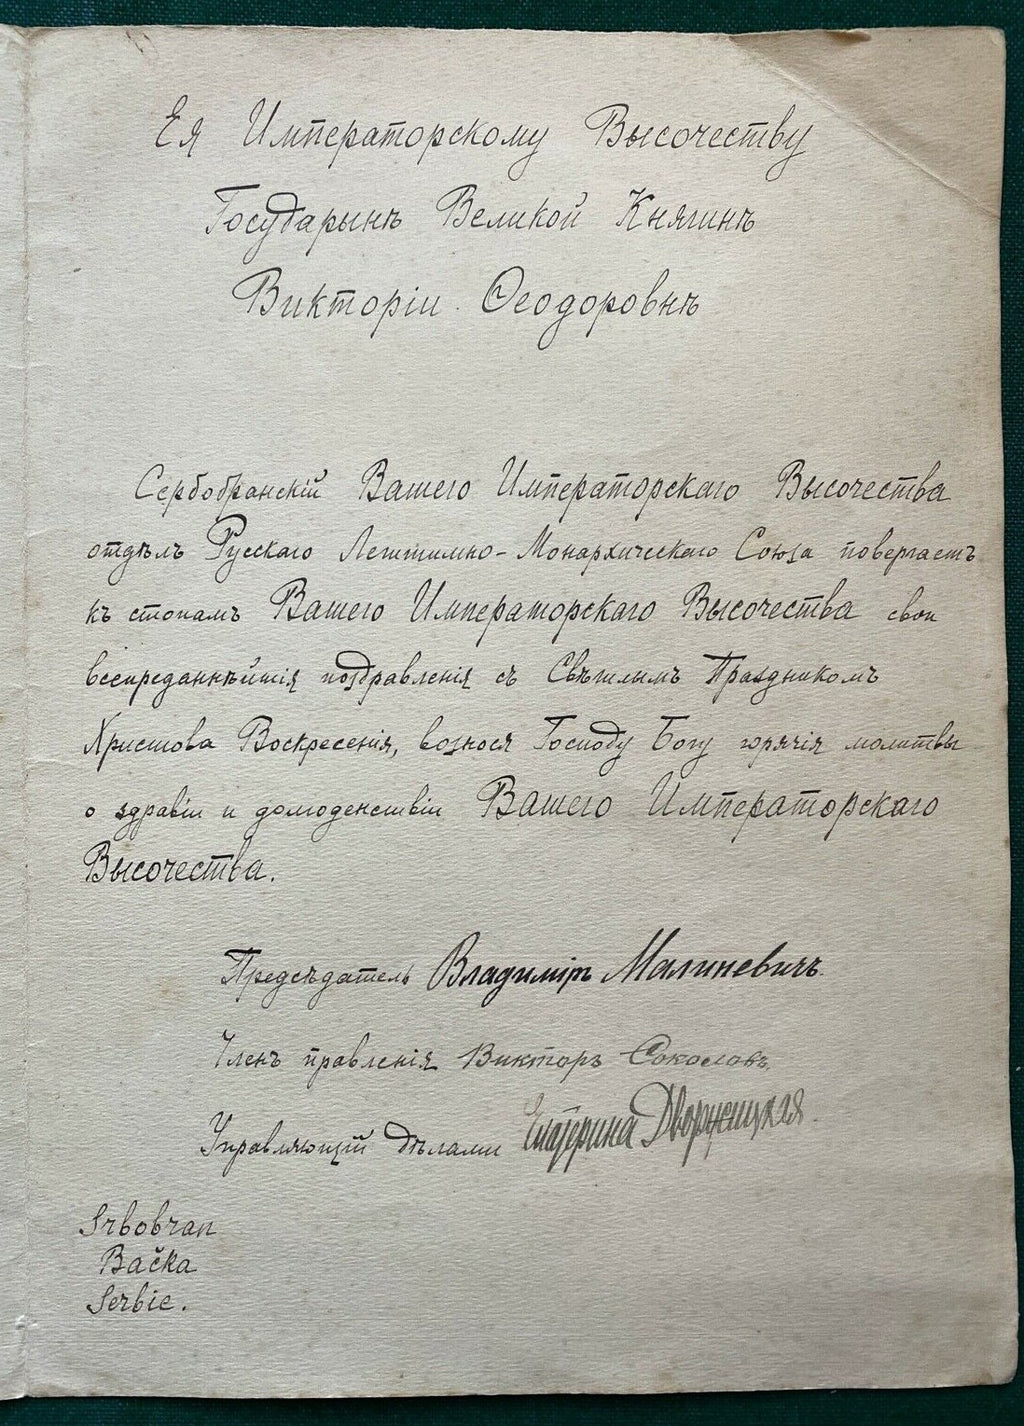 Ея Императорскому Высочеству
Государынѣ Великой Княгинѣ
Викторіи Ѳеодоровнѣ
Сербобранскій Вашего Императорскаго Высочества
отдѣлъ Русскаго Легитимно-Монархическаго Союза повергаетъ
къ стопамъ Вашего Императорскаго Высочества свои
всепреданнѣйшія поздравленія съ Свѣтлымъ Праздникомъ
Христова Воскресенія, вознося Господу Богу горячія молитвы
о здравіи и долгоденствіи Вашего Императорскаго
Высочества.
Предсѣдатель Владимiръ Малиневичъ.
Членъ правленія Викторъ Соколовъ.
Управляющій дѣлами Екатерина Дворжицкая.
Srbobran
Bačka
Serbie.